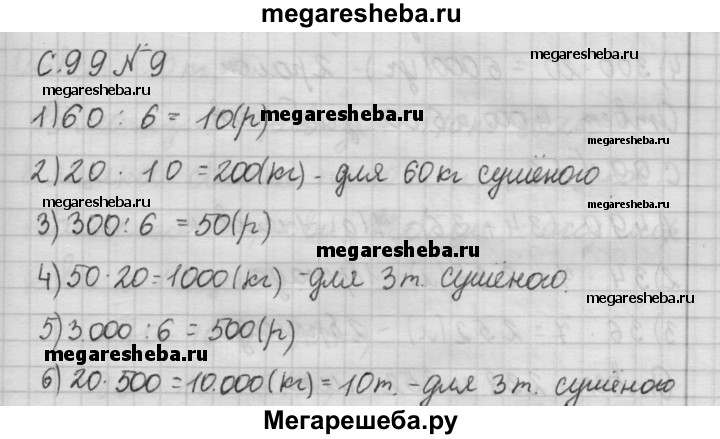 megaresheba.ru
С.99 №9
megaresheba.ru
megaresheba.ru
1) 60 : 6 = 10(р)
megaresheba.ru
2) 20 · 10 = 200(кг) - для 60кг сушёного
megaresheba.ru
3) 300 : 6 = 50(р)
megaresheba.ru
4) 50 · 20 = 1000(кг) - для 3т. сушёного.
megaresheba.ru
5) 3.000 : 6 = 500(р)
megaresheba.ru
6) 20 · 500 = 10.000(кг) = 10т. - для 3т. сушёного
Мегарешеба.ру